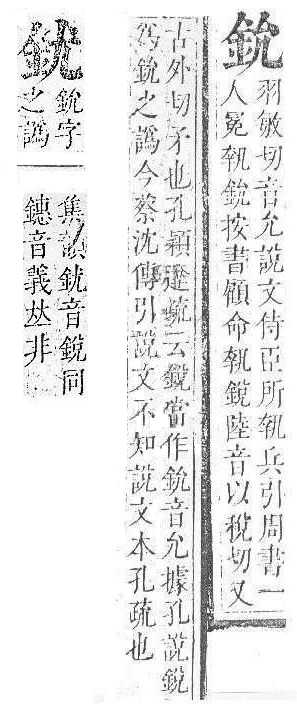 鈗
羽敏切音允說文侍臣所執兵引周書一
人冕執鈗按書顧命執銳陸音以稅切又
古外切矛也孔穎達疏云銳當作鈗音允據孔說銳
爲鈗之譌今蔡沈傳引說文不知說文本孔疏也
鈗字
之譌
集韻音銳同
鏸音義𠀤非